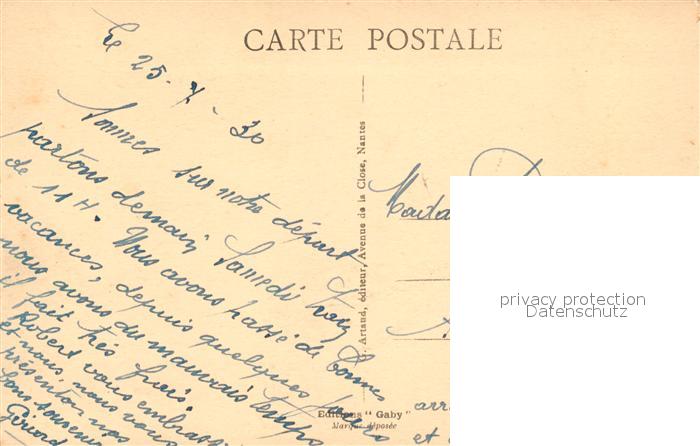 CARTE POSTALE
Le 25-7-30
Sommes sur notre départ
partons demain Samedi Train
de 11H. Nous avons passé de bonnes
vacances, depuis quelques jours
nous avons du mauvais temps
il fait très frais
Robert vous embrasse
et nous, nous vous
présentons
bons souvenirs
Girard
F. Artaud, éditeur, Avenue de la Close, Nantes
Editions "Gaby"
Marque déposée
Mada
arr
et
privacy protection
Datenschutz